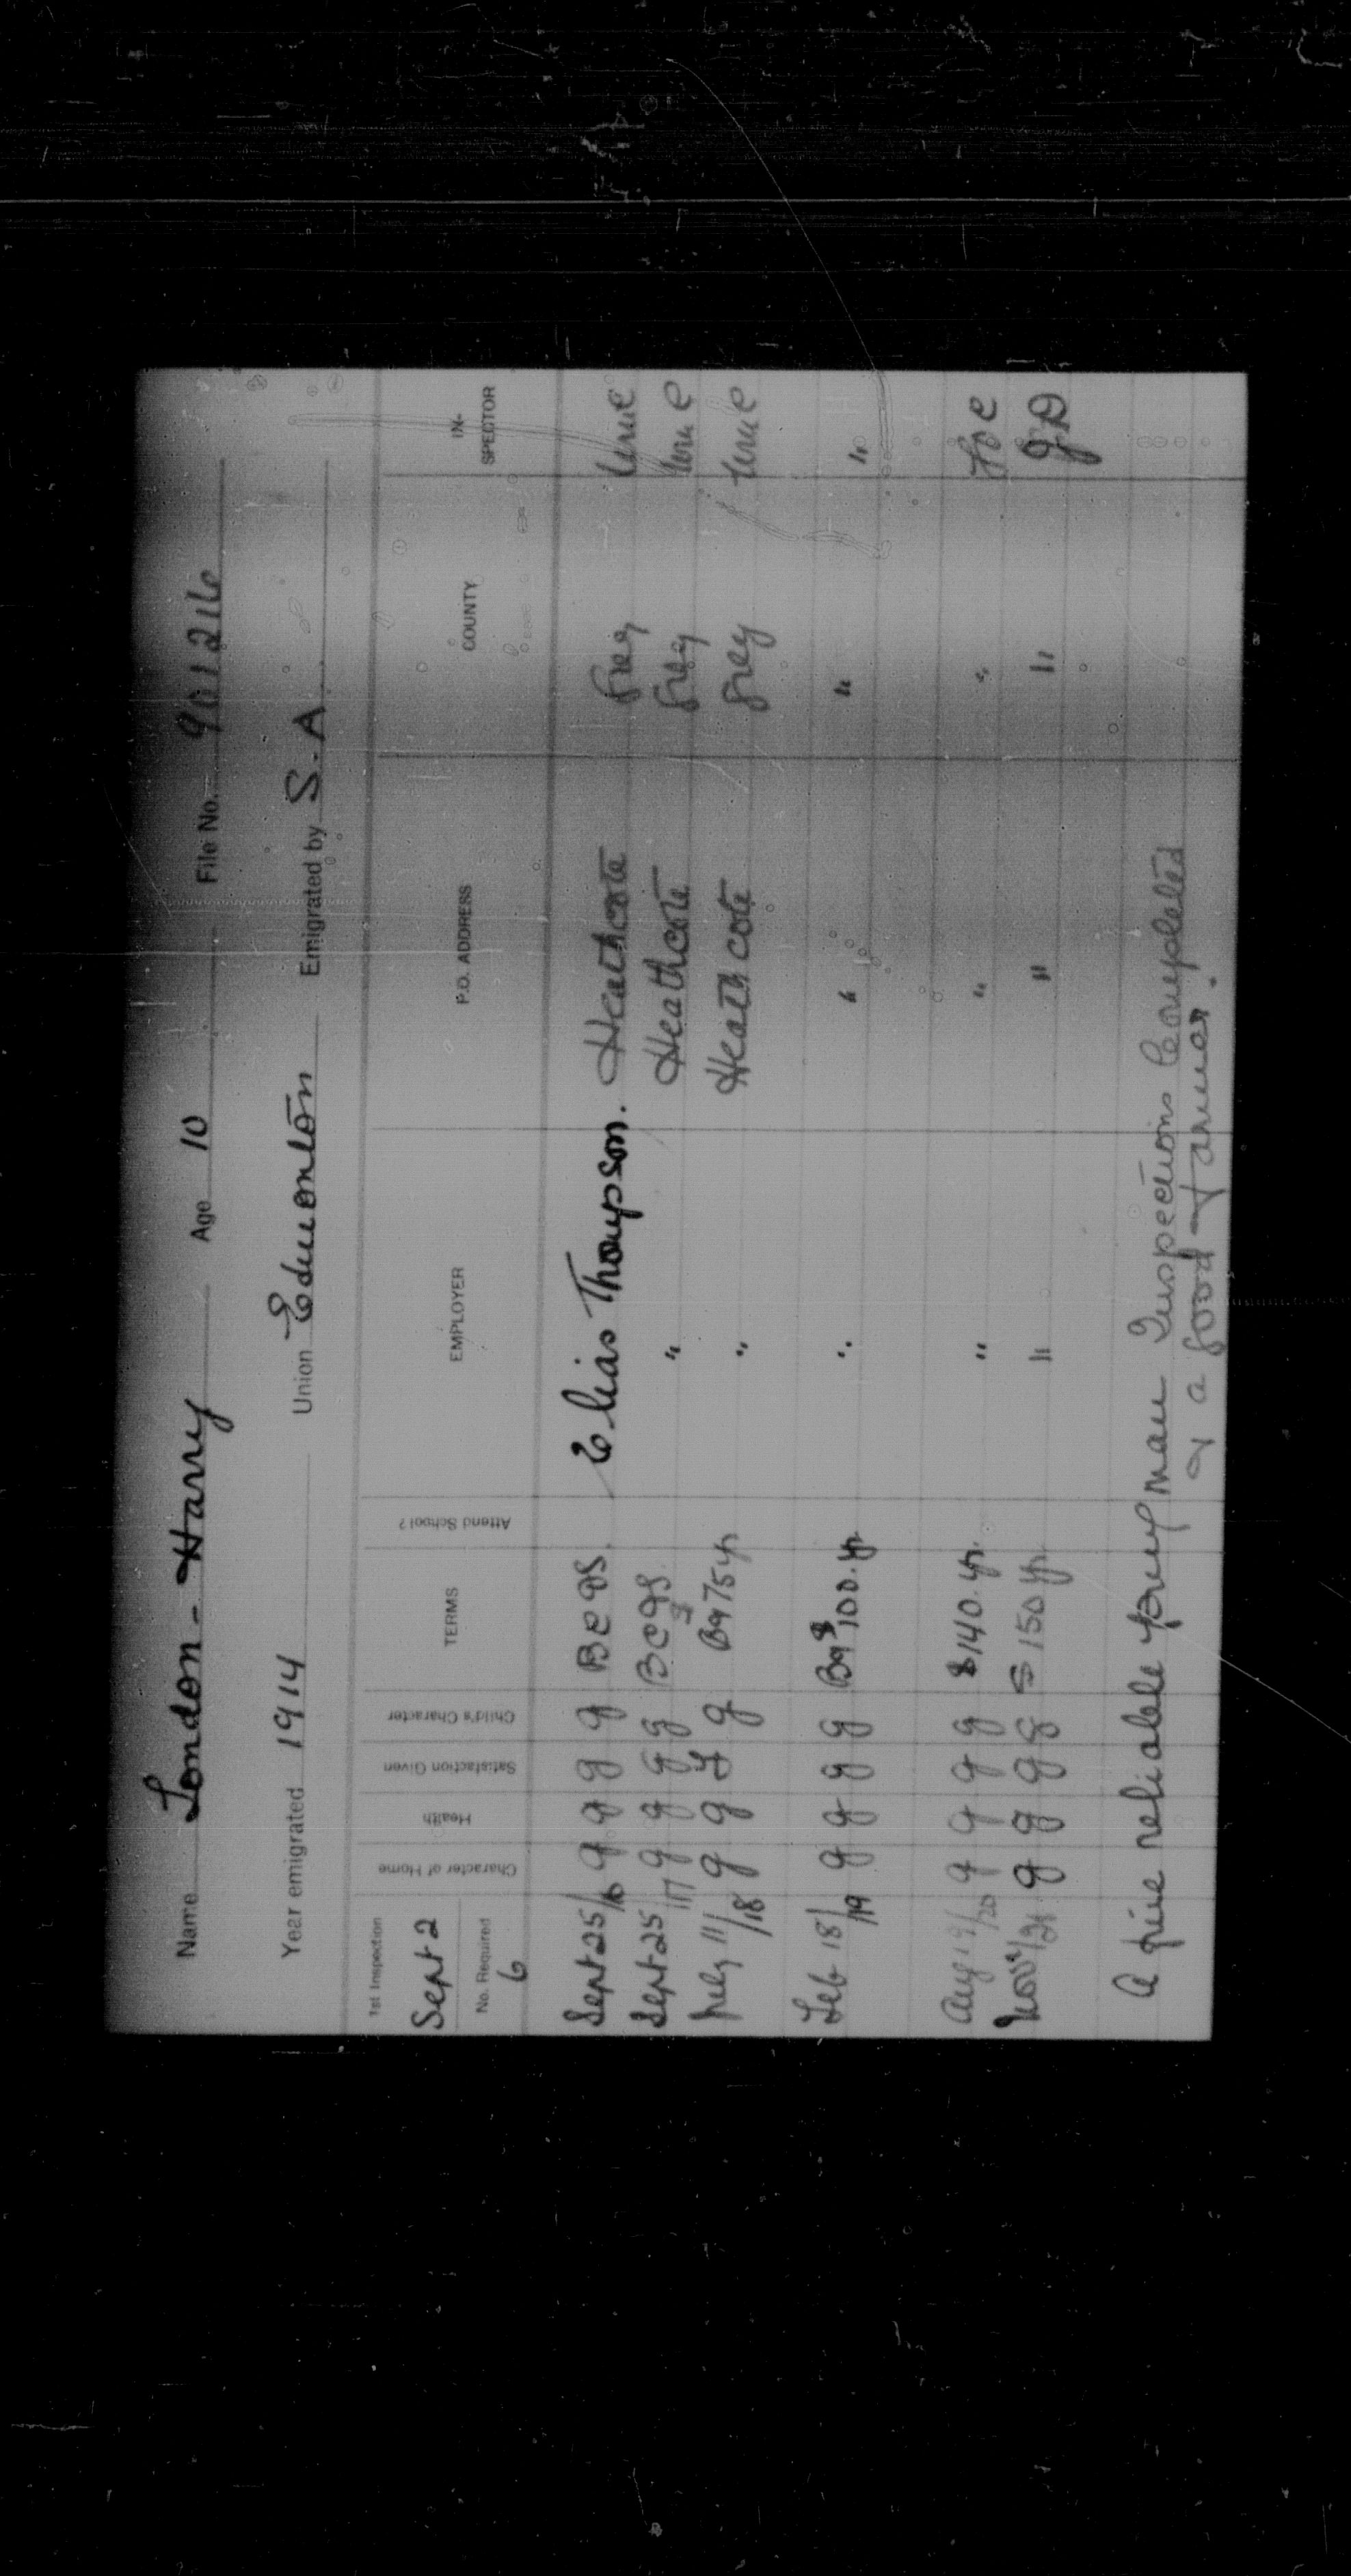 Name London - Harry Age 10 File No. 901216
Year emigrated 1914 Union Edmonton Emigrated by S. A.
1st Inspection Sept 2 No. Required 6 Character of Home Health Satisfaction Given Child's Character TERMS Attend School? EMPLOYER P.O. ADDRESS COUNTY IN-SPECTOR
Sept 25/16 g g g g BC&S. Elias Thompson. Heathcote Grey
Sept 25/17 g g g g BC&S " Heathcote Grey
July 11/18 g g g g B&$75 yr " Heathcote Grey
Feb 18/19 g g g g B&$100. yr. " " " "
Aug 19/20 g g g g $140. yr. " " "
Nov /21 g g g g $150 yr " " " GD
A fine reliable young man Inspections Completed
& a good farmer.